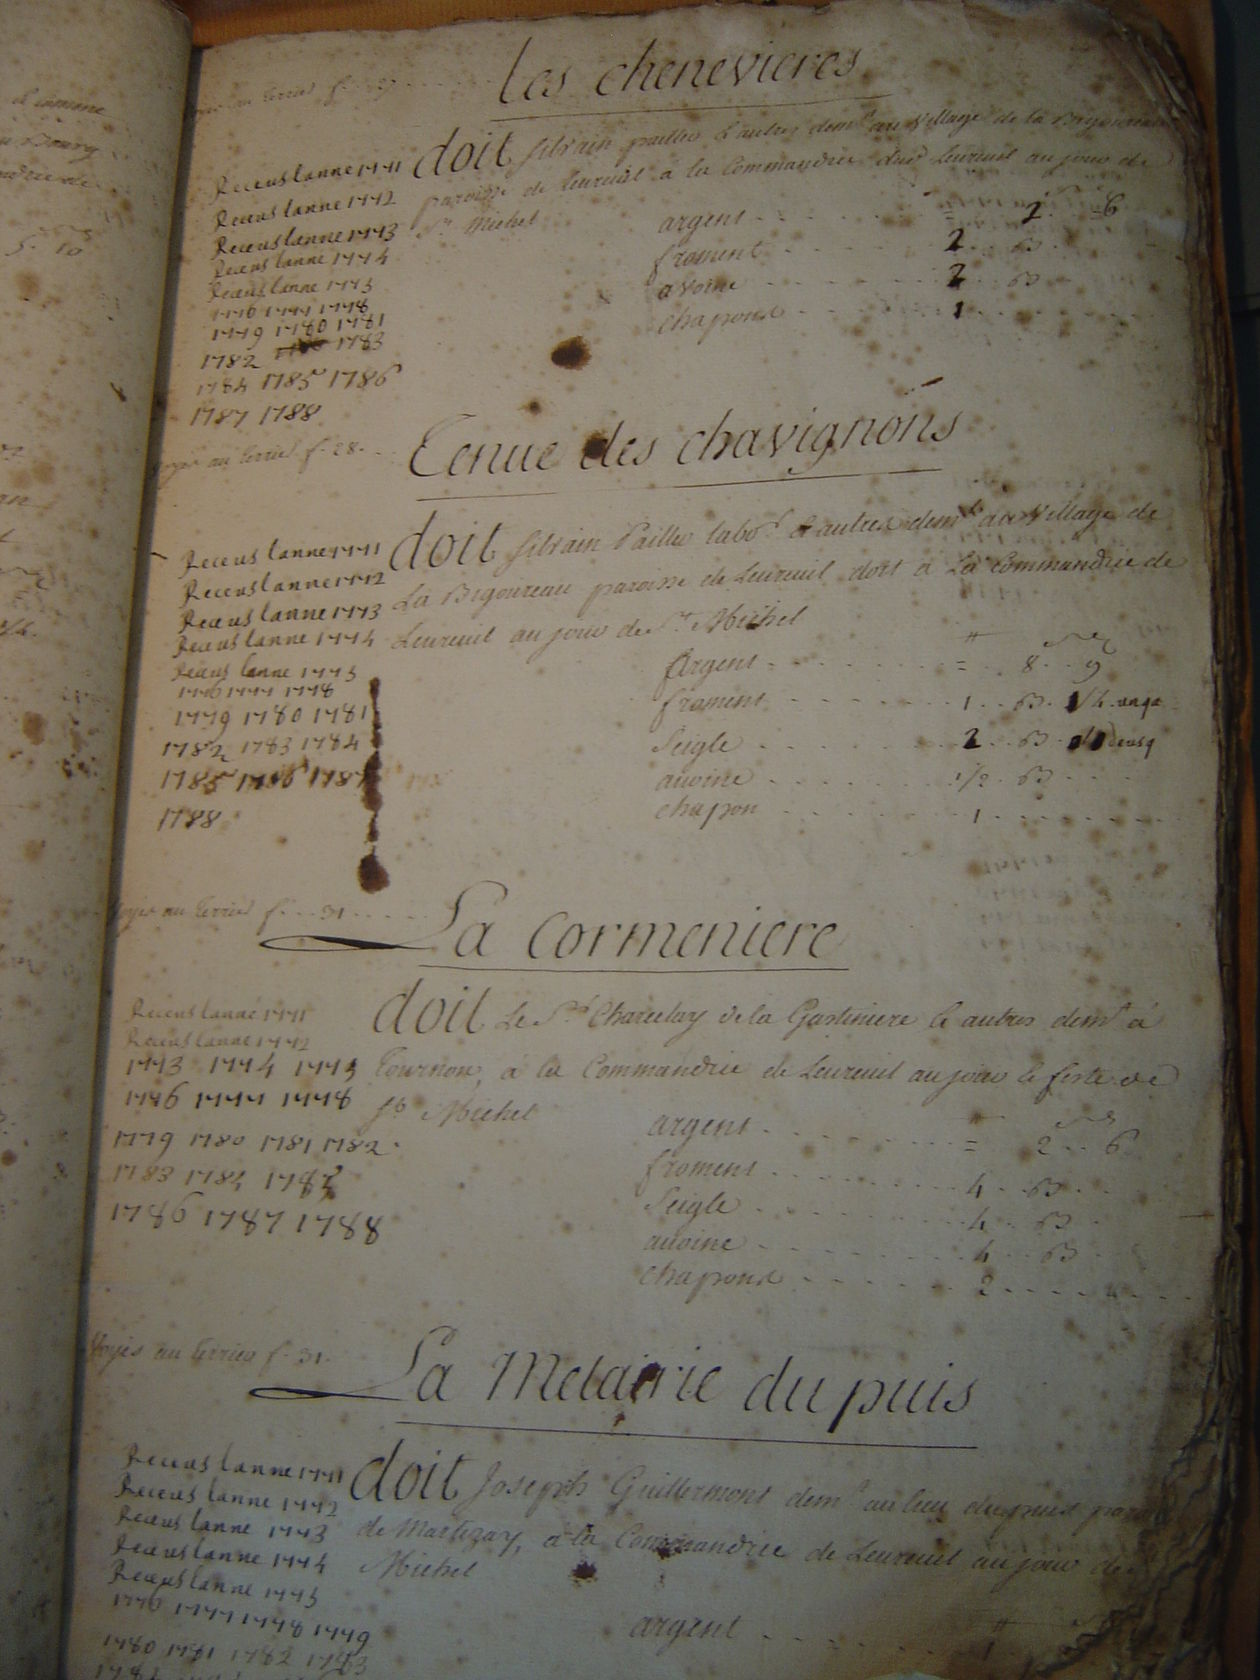 Les chenevieres
au terrier f. 27
doit Silvain paillier & autres demt au Village de la Bigoureau
paroisse de Leureuil à la Commandrie dud Leureuil au jour de
St Michel
Receus lanne 1771
Receus lanne 1772
Receus lanne 1773
Receus lanne 1774
Receus lanne 1775
1776 1777 1778
1779 1780 1781
1782 1783
1784 1785 1786
1787 1788
argent 2 6
froment 2 B
avoine 2 B
chapons 1
Voyes au terrier f. 28.
Tenue des chavignons
doit Silvain Paillier labor & autres demt au Village de
La Bigoureau paroisse de Leureuil doit à La Commandrie de
Leureuil au jour de St Michel
Receus lanne 1771
Receus lanne 1772
Receus lanne 1773
Receus lanne 1774
Receus lanne 1775
1776 1777 1778
1779 1780 1781
1782 1783 1784
1785 1786 1787
1788
Argent = 8 9
froment 1 B 1/2
Seigle 2 B
avoine 1/2 B
chapon 1
Voyes au terrier f. 31
La cormeniere
doit Le Sr Charcelay de la Gastiniere & autres demt à
Tournon, à la Commandrie de Leureuil au jour & feste de
St Michel
Receus lanne 1771
Receus lanne 1772
1773 1774 1775
1776 1777 1778
1779 1780 1781 1782
1783 1784 1785
1786 1787 1788
argent = 2 6
froment 4 B
Seigle 4 B
avoine 4 B
chapons 2
Voyes au terrier f. 31.
La Metairie du puis
doit Joseph Guillermont demt au lieu du puis
de Martizay, à la Commandrie de Leureuil au jour de
Michel
Receus lanne 1771
Receus lanne 1772
Receus lanne 1773
Receus lanne 1774
Receus lanne 1775
1776 1777 1778 1779
1780 1781 1782 1783
argent 1